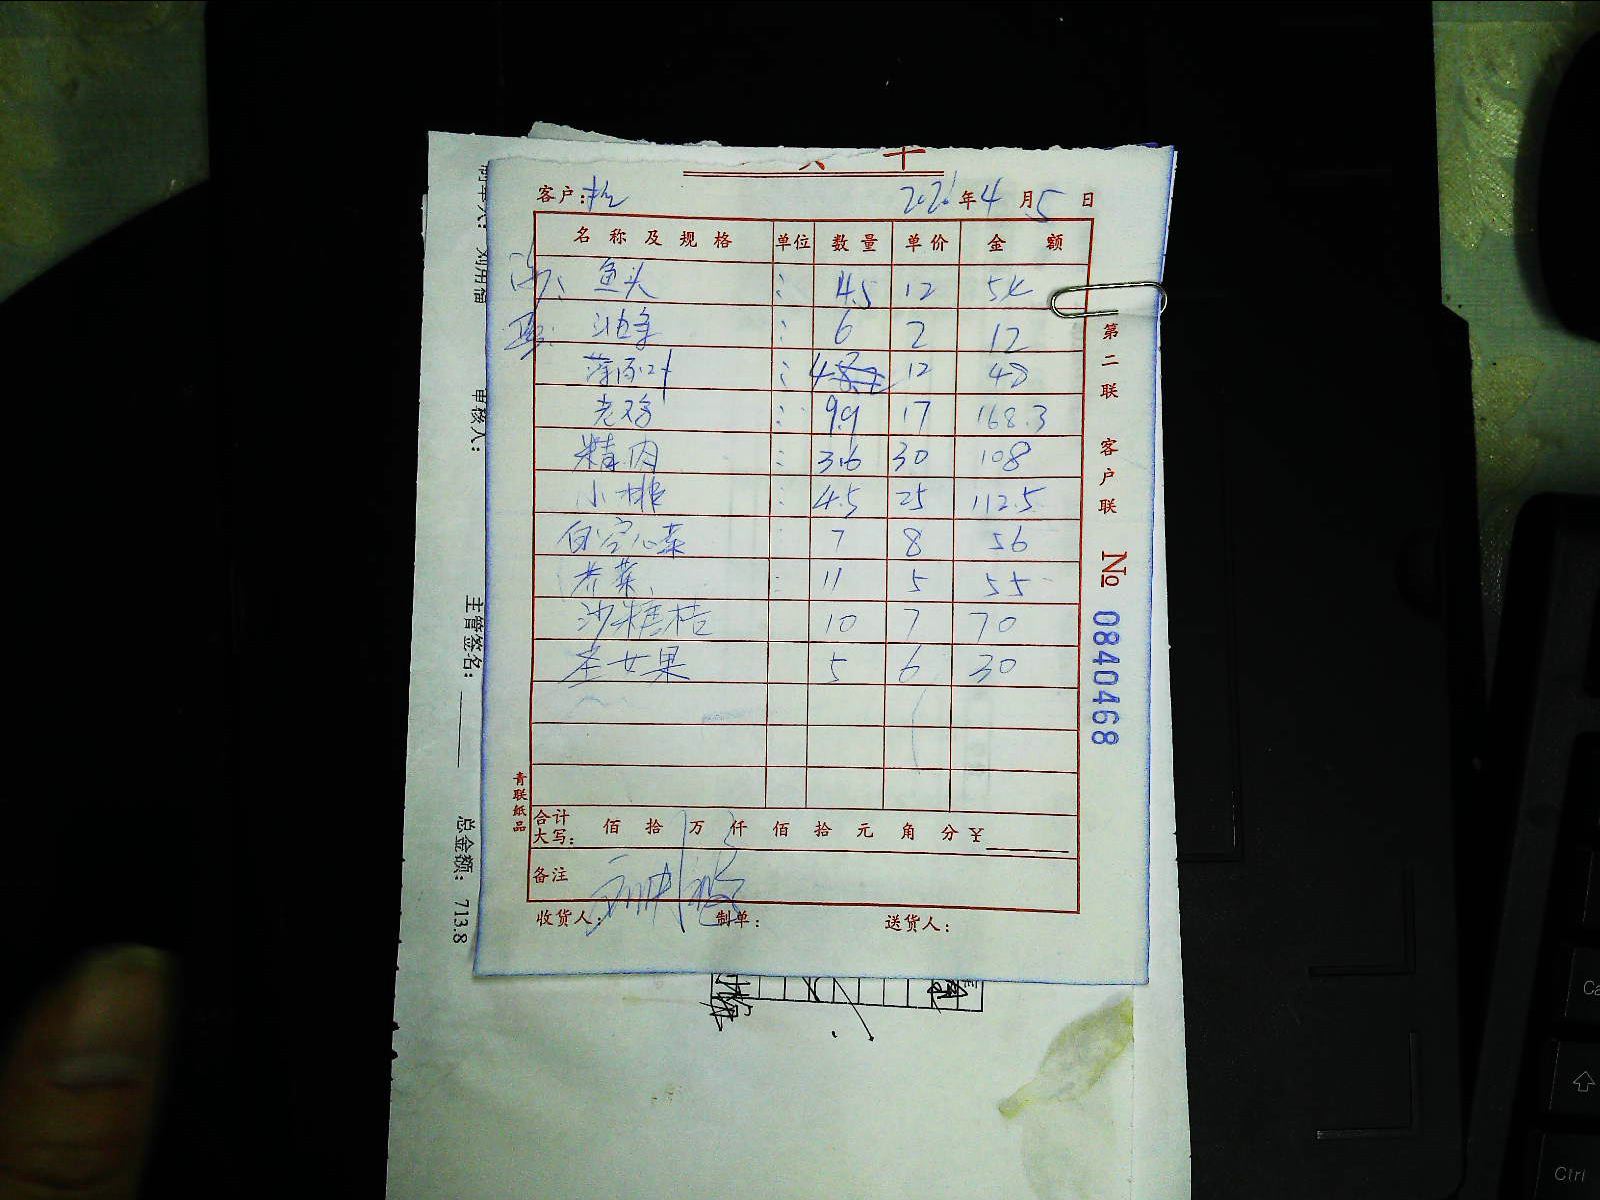 客户:
2026年4月5日
名称及规格 单位 数量 单价 金额
鱼头 : 4.5 12 54
: 6 2 12
: 4 12 48
老鸡 : 9.9 17 168.3
精肉 : 3.6 30 108
小排 : 4.5 25 112.5
白空心菜 7 8 56
芥菜 : 11 5 55
沙糖桔 10 7 70
圣女果 5 6 30
合计大写: 佰拾万仟佰拾元角分¥
备注
收货人: 制单: 送货人:
第二联 客户联 № 0840468
青联纸品
审核人:
主管签名:
总金额: 713.8